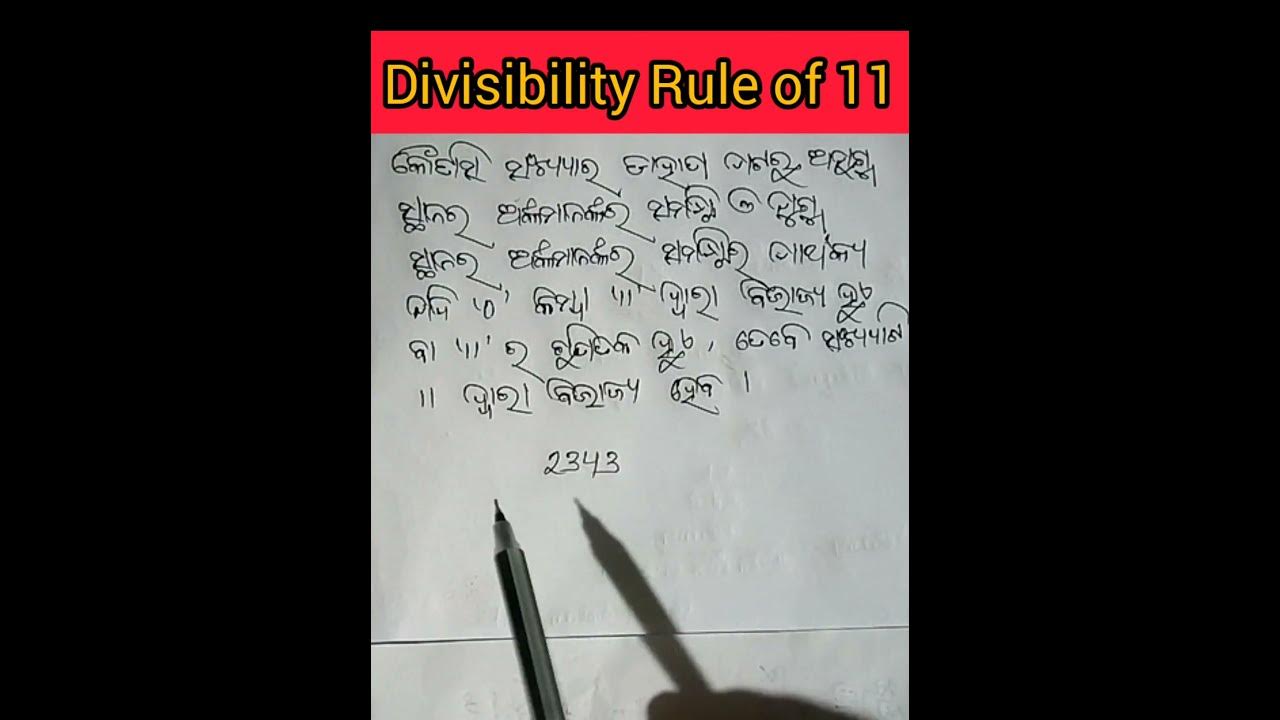 Divisibility Rule of 11
କୌଣସି ସଂଖ୍ୟାର ଡାହାଣ ପାଖରୁ ଅଯୁଗ୍ମ
ସ୍ଥାନର ଅଙ୍କମାନଙ୍କର ସମଷ୍ଟି ଓ ଯୁଗ୍ମ
ସ୍ଥାନର ଅଙ୍କମାନଙ୍କର ସମଷ୍ଟିର ପାର୍ଥକ୍ୟ
ଯଦି '0' କିମ୍ବା '11' ଦ୍ୱାରା ବିଭାଜ୍ୟ ହୁଏ
ବା '11' ର ଗୁଣିତକ ହୁଏ, ତେବେ ସଂଖ୍ୟାଟି
11 ଦ୍ୱାରା ବିଭାଜ୍ୟ ହେବ ।
2343